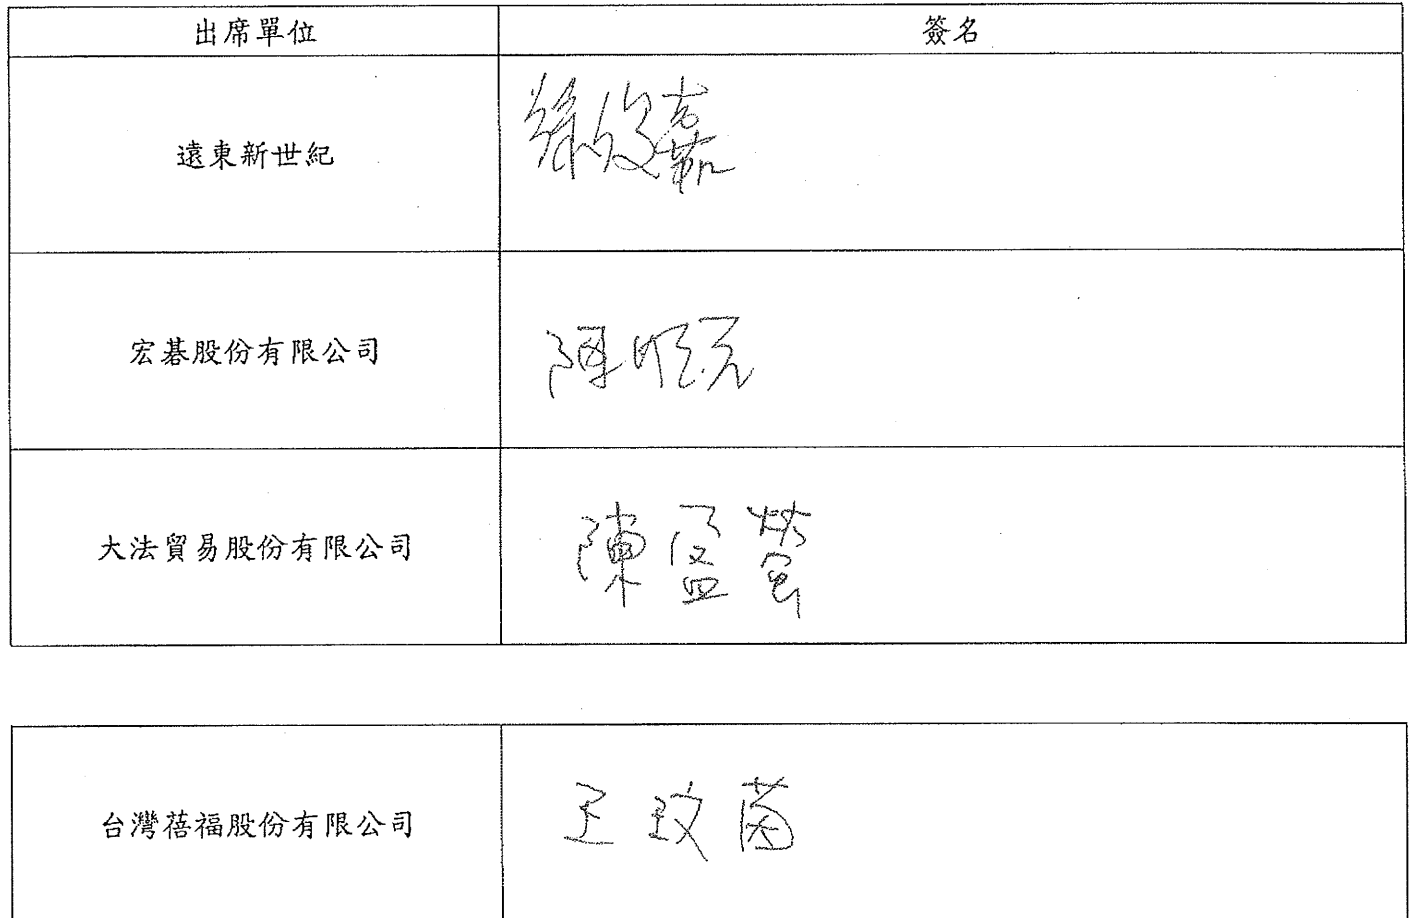 出席單位
簽名
遠東新世紀
宏碁股份有限公司
陳順元
大法貿易股份有限公司
陳盈螢
台灣蓓福股份有限公司
王玟茵